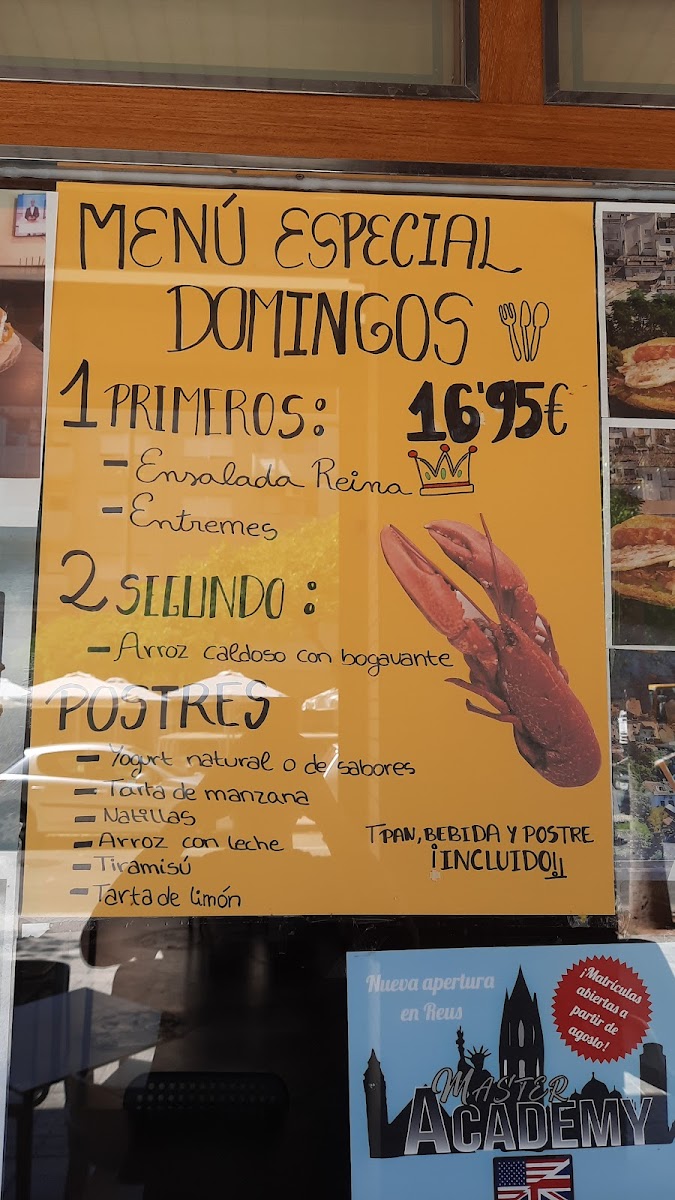 MENÚ ESPECIAL
DOMINGOS
1 PRIMEROS:
16'95€
- Ensalada Reina
- Entremes
2 SEGUNDO:
- Arroz caldoso con bogavante
POSTRES
- Yogurt natural o de sabores
- Tarta de manzana
- Natillas
- Arroz con leche
- Tiramisú
- Tarta de limón
PAN, BEBIDA Y POSTRE
¡INCLUIDO!
Nueva apertura
en Reus
¡Matrículas
abiertas a
partir de
agosto!
MASTER
ACADEMY